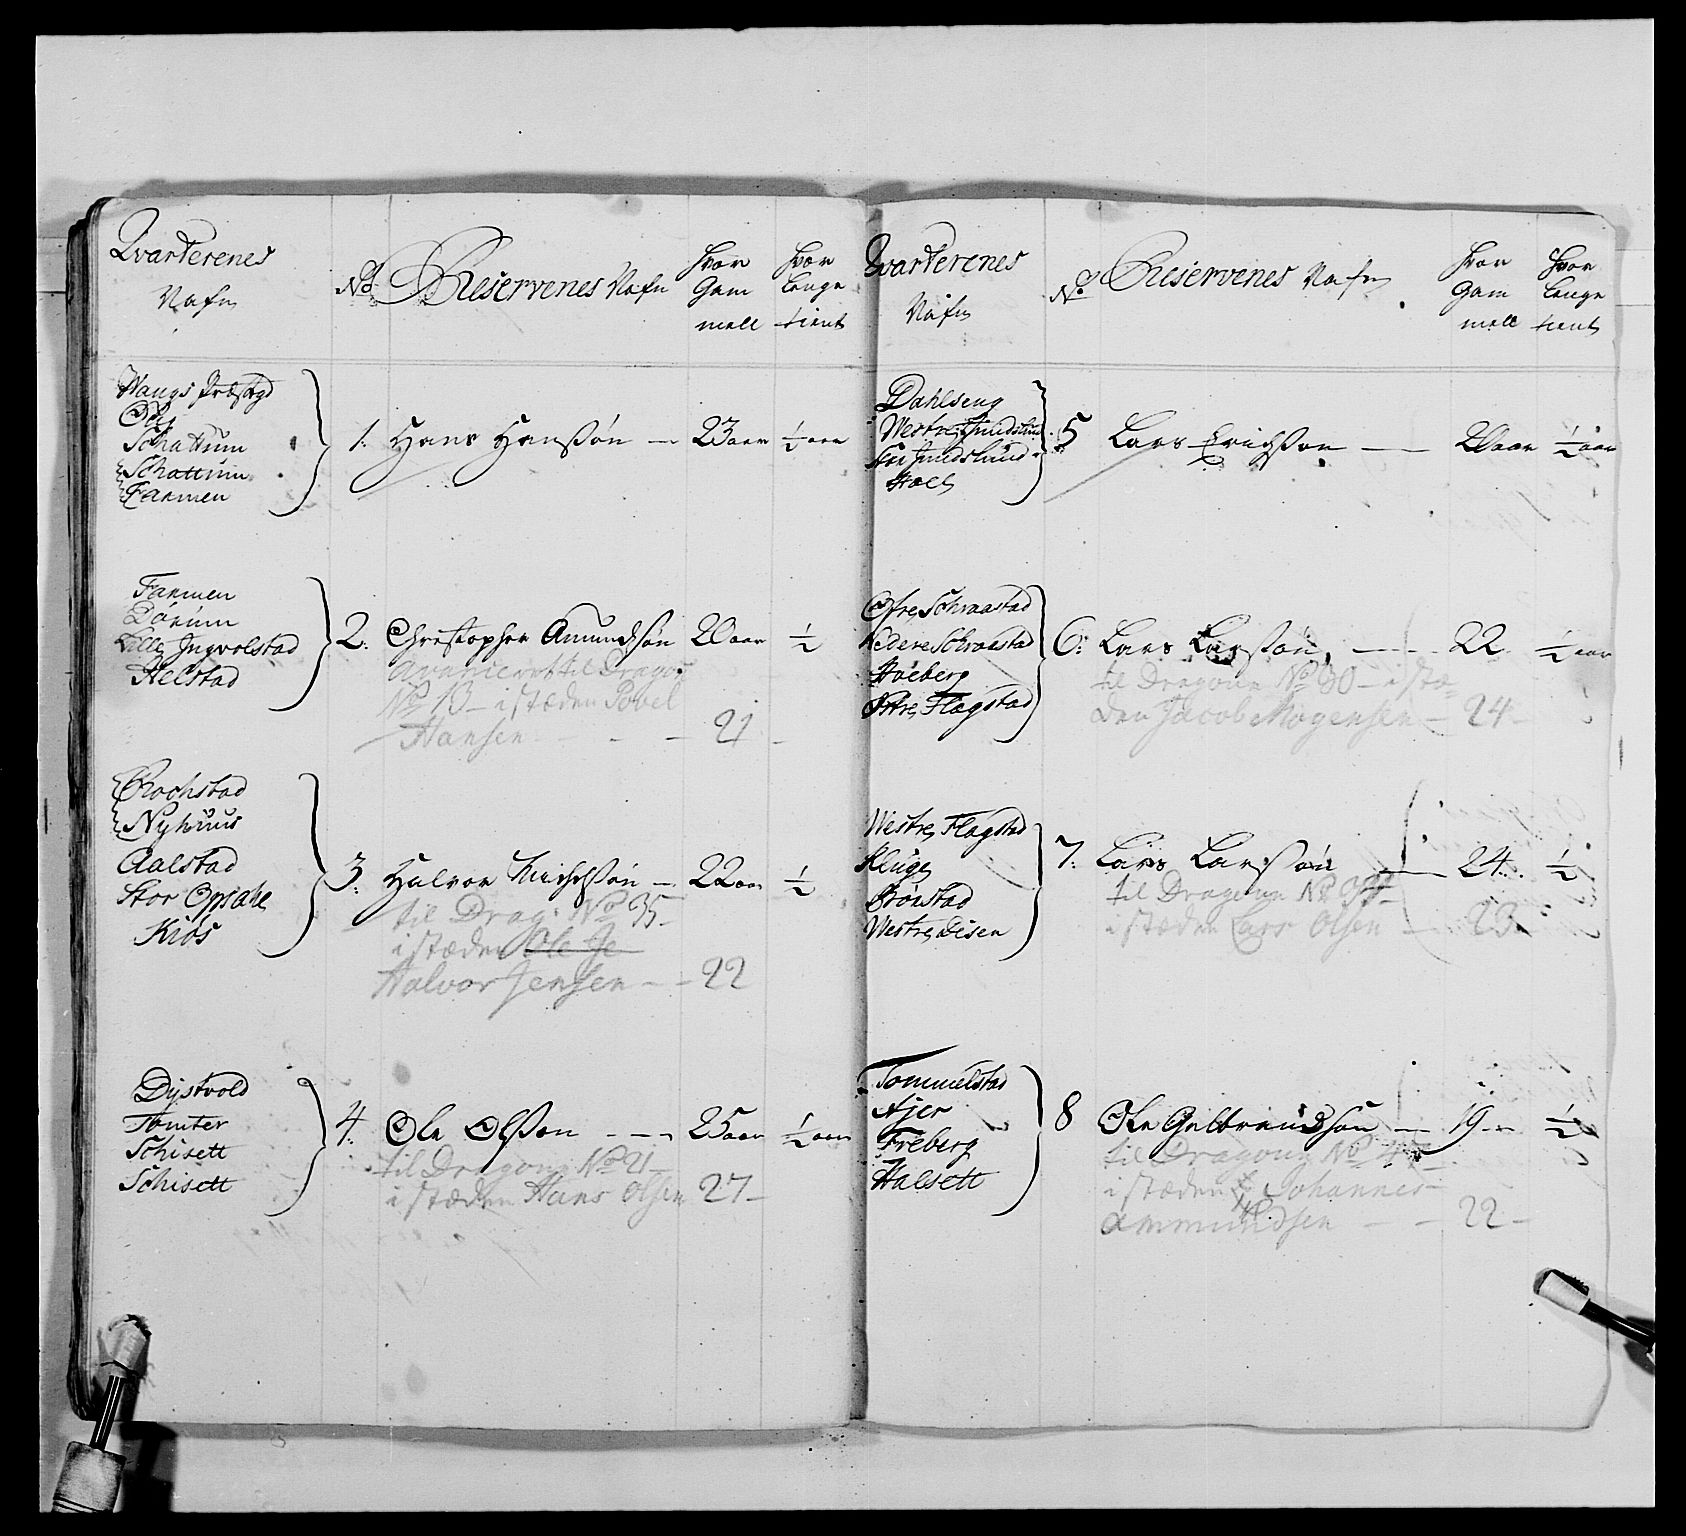 Qvarterenes
Nafn
No
Reservenes Nafn
Hvor
Gam
mell
Hvor
lenge
tient
Wangs Præstgd
Schattum
Schattum
Farmen
1. Hans Hanssøn — 23 aar ½ aar
Farmen
Lille Ingvolstad
Helstad
2. Christopher Amundsøn 20 aar ½
Avancieret til Dragon
No 13 – i stæden Povel
Hansen - - - 21 -
Rochstad
Nyhuus
Aalstad
Stor Opsahl
Kiøs
3. Halvor — 22 aar ½
til Drag: No 35 –
i stæden Ole Je
Halvor Jensen – – 22
Dystvold
Tomter
Schisett
Schisett
4. Ole Olsson – – – 25 aar ½ aar
til Dragon No 21 –
i stæden Hans Olsen 27 –
Qvarterenes
Nafn
No
Reservenes Nafn
Hvor
Gam
mell
Hvor
lenge
tient
Dahlseng
Westre Jmdslund
Stor Jmdslund
Hoel
5 Lars Erichsson — 20 aar ½ aar
Øfre Schraastad
Nedere Schraastad
Høeberg
Østre Flagstad
6: Lars Larssøn, — 22 ½ aar
til Dragon No 30 – i stæ-
den Jacob Mogensen – 24 –
Westre Flagstad
Kluge
Brønstad
Westre Disen
7: Lars Larssøn — 24. ½
til Dragon No
i stæden Lars Olsen — 23
Tommelstad
Ajer
Freberg
Halsett
8 Ole Gulbrandsøn — 19 – ½
til Dragon No 47 –
i stæden Johannes
Ammundsen – – 22 –